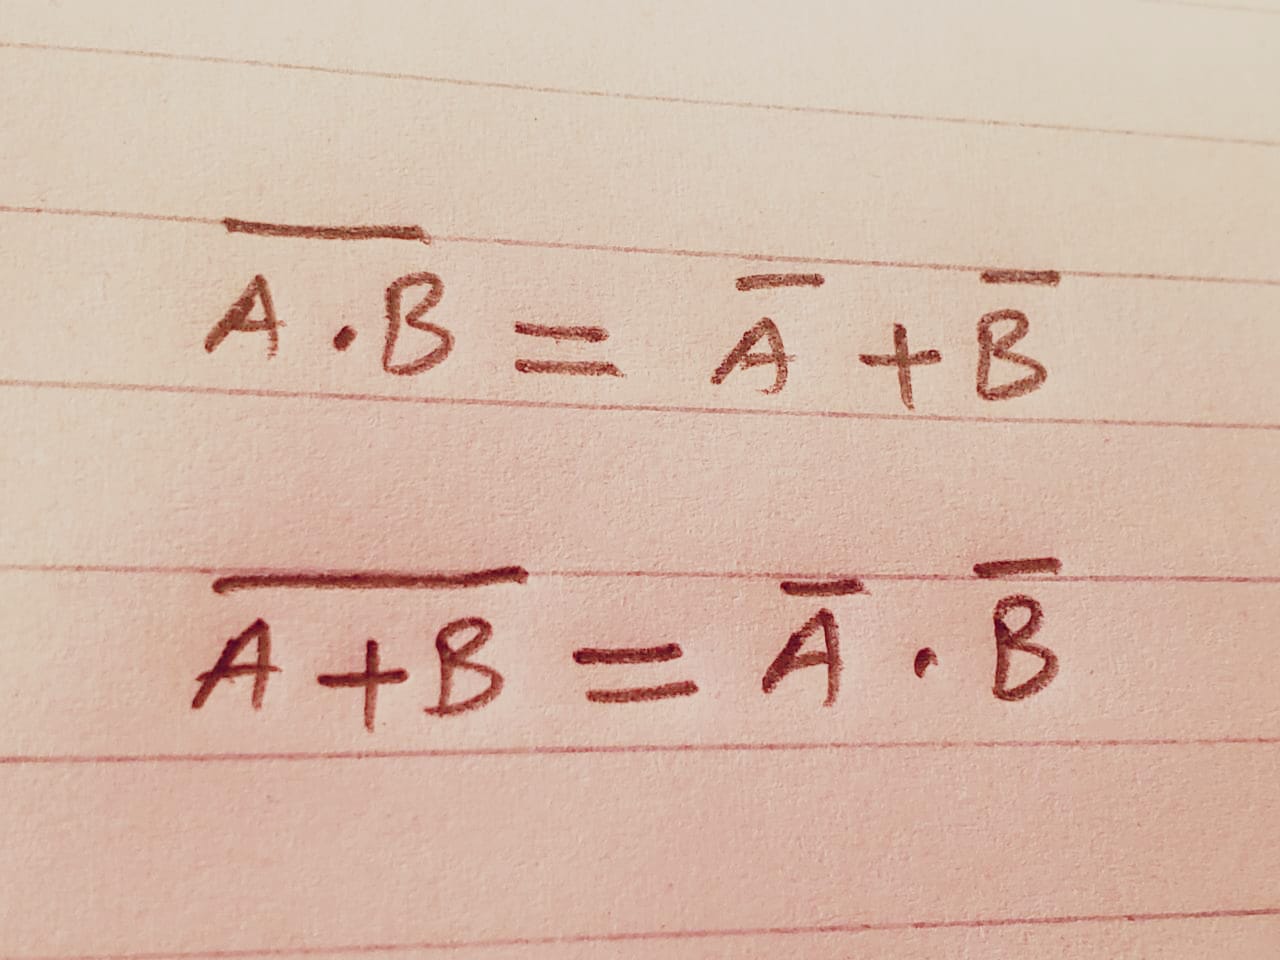 A̅ ̅·̅ ̅B̅ = A̅ + B̅
A̅ ̅+̅ ̅B̅ = A̅ · B̅